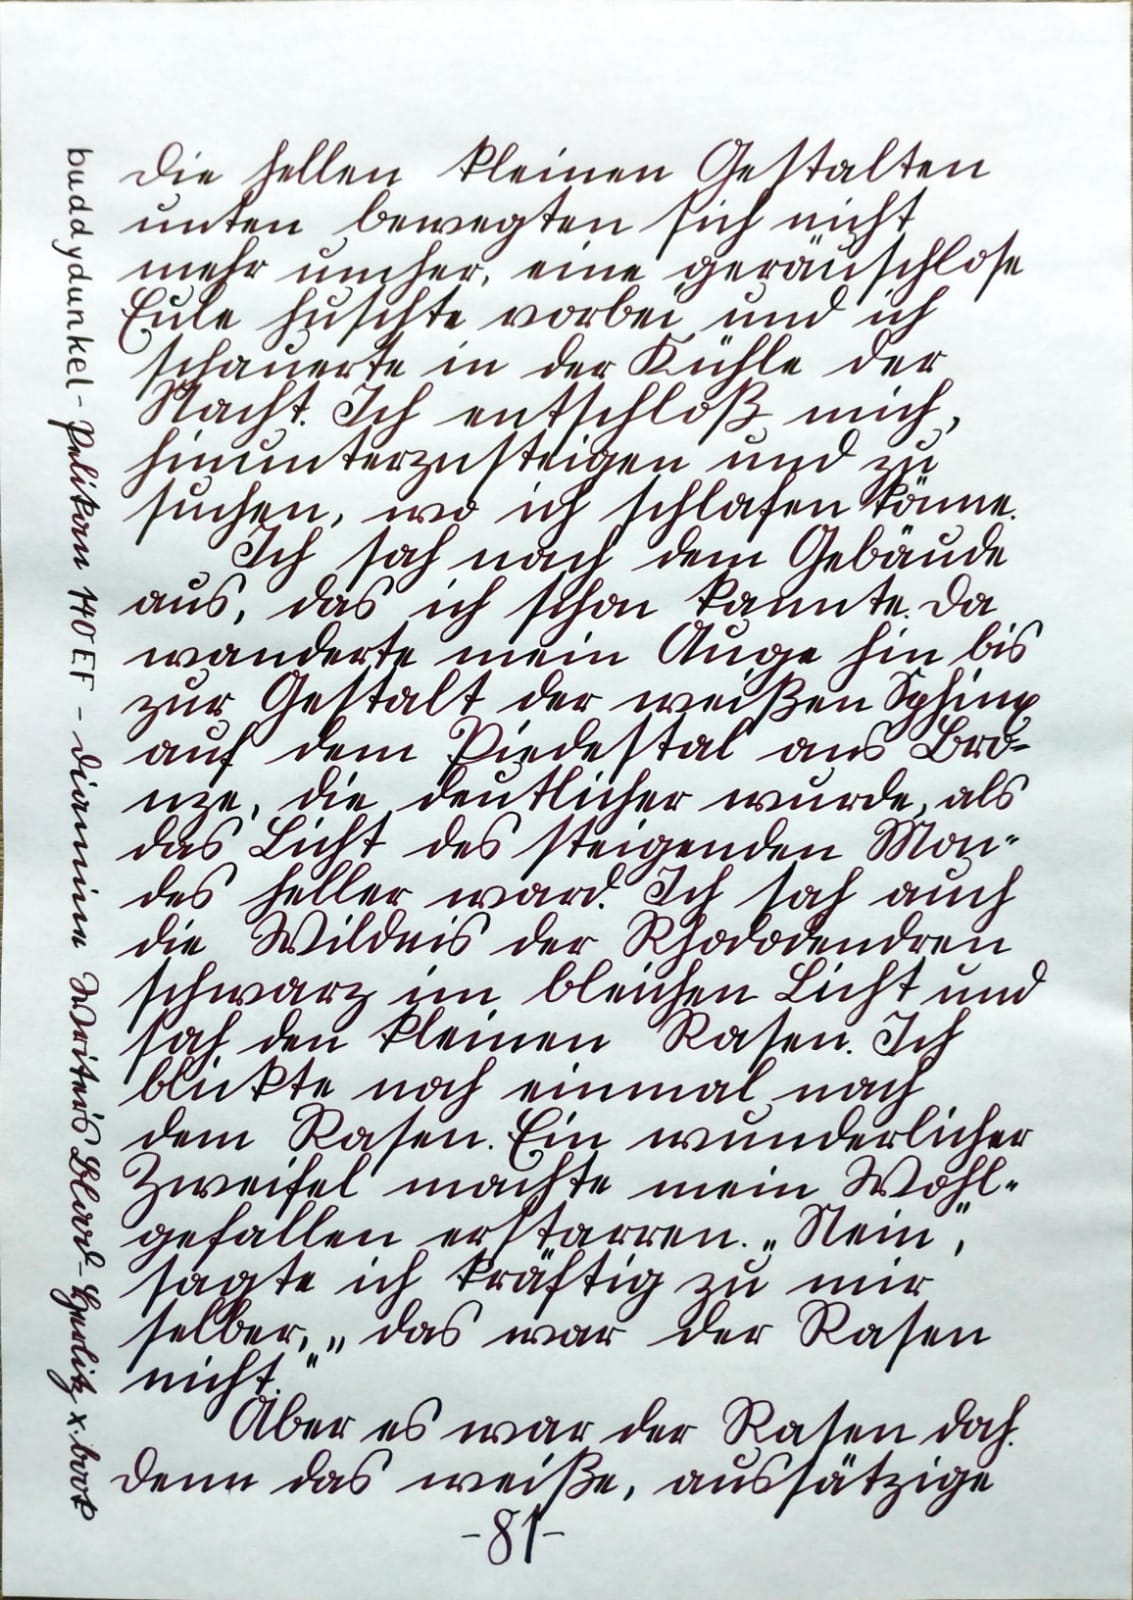 Die hellen kleinen Gestalten
unten bewegten sich nicht
mehr umher, eine geräuschlose
Eule huschte vorbei, und ich
schauerte in der Kühle der
Nacht. Ich entschloß mich,
hinunterzusteigen und zu
suchen, wo ich schlafen könne.
Ich sah nach dem Gebäude
aus, das ich schon kannte. Da
wanderte mein Auge hin bis
zur Gestalt der weißen Sphinx
auf dem Piedestal aus Bro-
nze, die deutlicher wurde, als
das Licht des steigenden Mon-
des heller ward. Ich sah auch
die Wildnis der Rhododendren
schwarz im bleichen Licht und
sah den kleinen Rasen. Ich
blickte noch einmal nach
dem Rasen. Ein wunderlicher
Zweifel machte mein Wohl-
gefallen erstarren. „Nein",
sagte ich kräftig zu mir
selber, „das war der Rasen
nicht."
Aber es war der Rasen doch.
Denn das weiße, aussätzige
-81-
buddydunkel - Pelikan 140 EF - diamine Writer's Blood - x.book